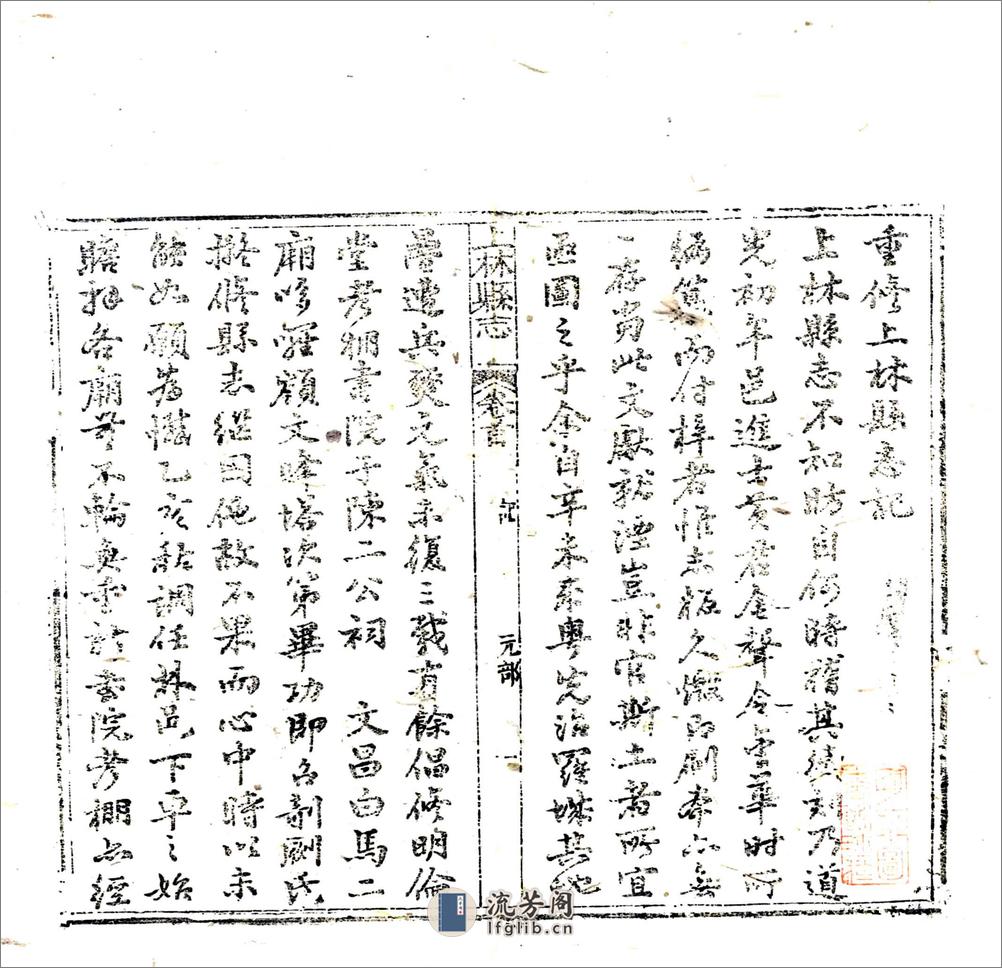 重修上林縣志記
上林縣志不知昉自何時稽其續刻乃道
光初年邑進士黃君金聲令華時所
編纂而付梓者惟志板久燬即刷本亦無
一存當此文獻就湮豈非官斯土者所宜
亟圖之乎余自辛未來粵先治羅城其地
上林縣志 卷首 記 元部 一
屢遭兵燹元氣未復三載有餘倡修明倫
堂考棚書院于陳二公祠 文昌白馬二
廟嗲囉額文峰塔次第畢功即召剞劂氏
擬修縣志繼因他故不果而心中時以未
能如願為憾乙亥秋調任林邑下車之始
瞻拜各廟等不輪奐至於書院考棚亦經
流芳阁
lfglib.cn